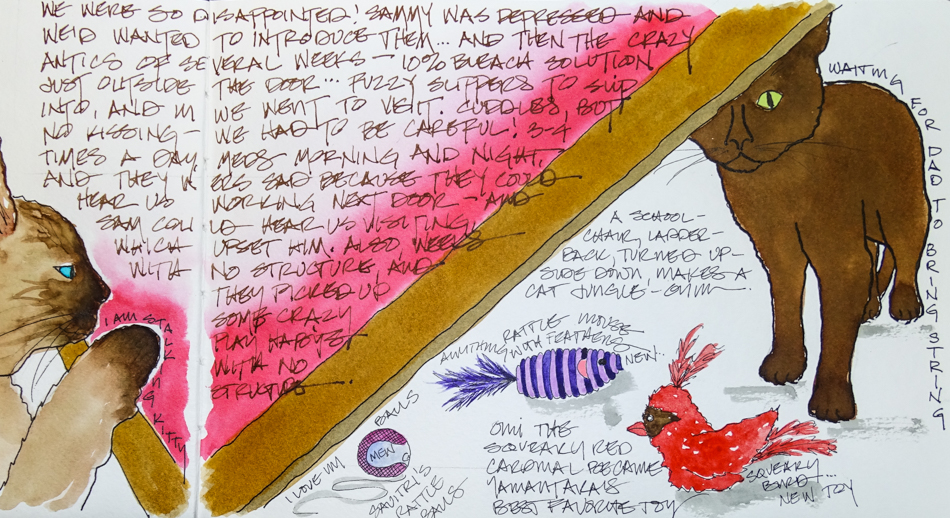 WE WERE SO DISAPPOINTED! SAMMY WAS DEPRESSED AND
WE'D WANTED TO INTRODUCE THEM... AND THEN THE CRAZY
ANTICS OF SEVERAL WEEKS - 10% BLEACH SOLUTION
JUST OUTSIDE THE DOOR... FUZZY SLIPPERS TO SLIP
INTO, AND IN WE WENT TO VISIT. CUDDLES, BUT
NO KISSING - WE HAD TO BE CAREFUL! 3-4
TIMES A DAY, MEDS MORNING AND NIGHT,
AND THEY WERE SAD BECAUSE THEY COULD
HEAR US WORKING NEXT DOOR - AND
SAM COULD HEAR US VISITING,
WHICH UPSET HIM. ALSO, WEEKS
WITH NO STRUCTURE, AND
THEY PICKED UP
SOME CRAZY
PLAY HABITS!
WITH NO
STRUCTURE.
I AM STALKING KITTY
WAITING FOR DAD TO BRING STRING
A SCHOOL-
CHAIR, LADDER-
BACK, TURNED UP-
SIDE DOWN, MAKES A
CAT JUNGLE-GYM
RATTLE MOUSE
WITH FEATHERS
ANYTHING
NEW...
BALLS
MEW
I LOVE 'EM
SAVITRI'S
RATTLE
BALLS
OMI THE
SQUEAKY RED
CARDINAL BECAME
YAMANTAKA'S
BEST FAVORITE TOY
SQUEAKY...
BIRD
NEW TOY